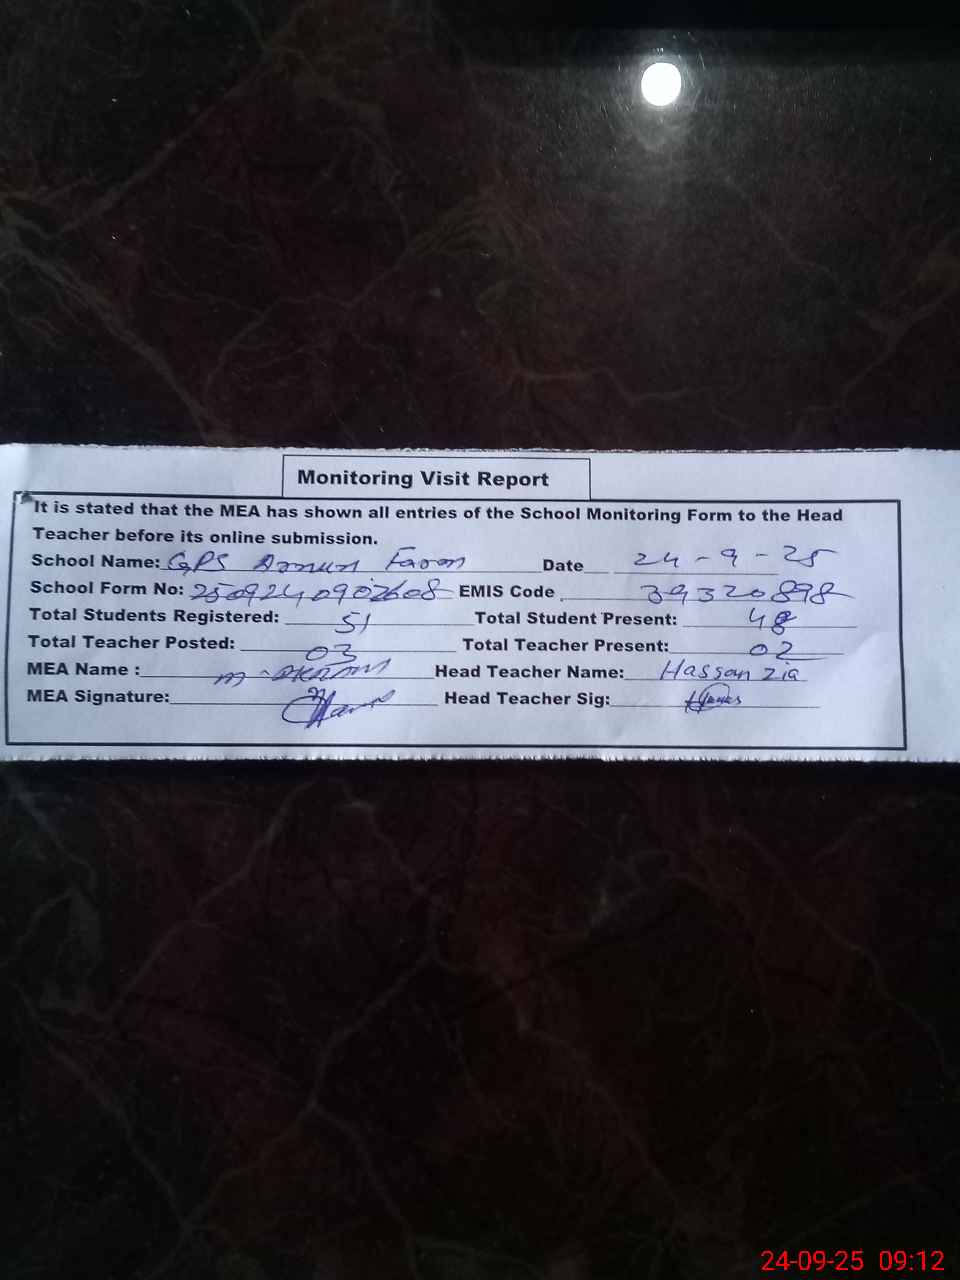 Monitoring Visit Report
It is stated that the MEA has shown all entries of the School Monitoring Form to the Head
Teacher before its online submission.
School Name: GPS Farm Date 24-9-25
School Form No: 2509240902608 EMIS Code 39320898
Total Students Registered: 51 Total Student Present: 48
Total Teacher Posted: 03 Total Teacher Present: 02
MEA Name : M. Akram Head Teacher Name: Hassan Zia
MEA Signature: Head Teacher Sig:
24-09-25 09:12